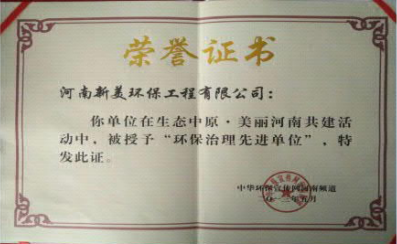 荣誉证书
河南新美环保工程有限公司：
你单位在生态中原·美丽河南共建活
动中，被授予“环保治理先进单位”，特
发此证。
中华环保宣传网河南频道
二〇一三年五月